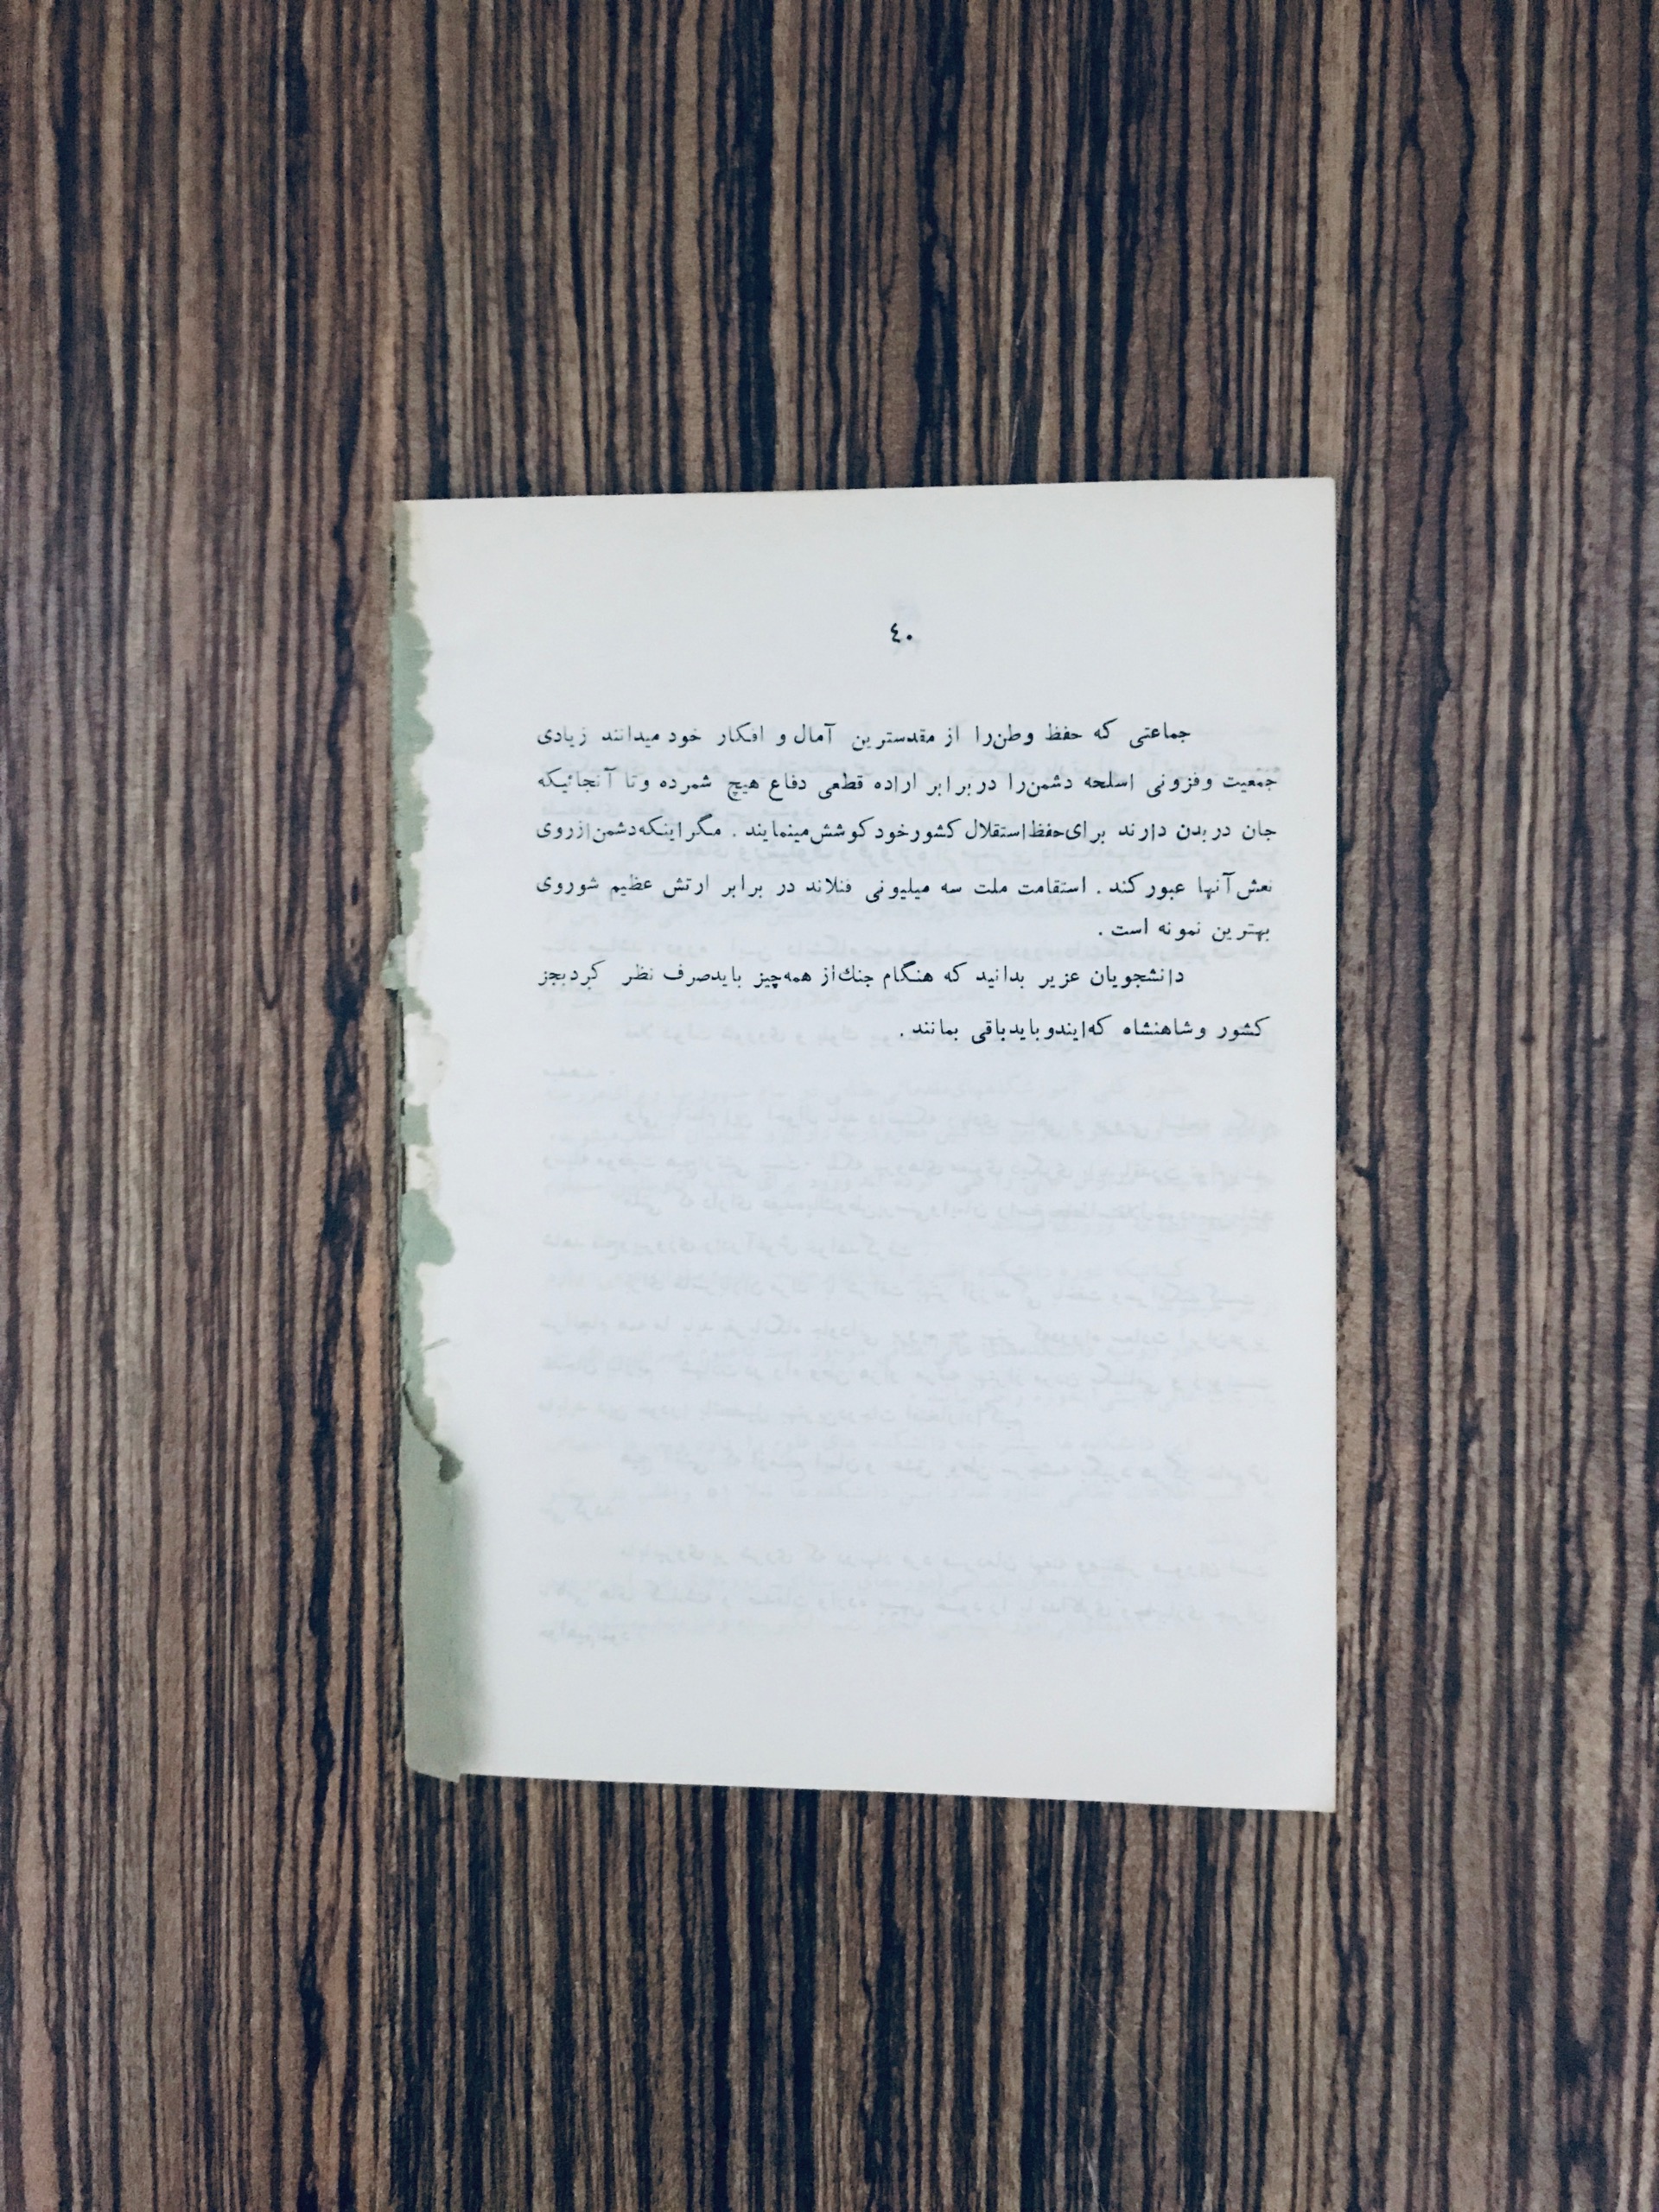 ٤٠
جماعتی که حفظ وطن‌را از مقدسترین آمال و افکار خود میدانند زیادی
جمعیت وفزونی اسلحه دشمن‌را در برابر اراده قطعی دفاع هیچ شمرده وتا آنجائیکه
جان در بدن دارند برای‌حفظ‌استقلال کشورخود کوشش‌مینمایند . مگر اینکه‌دشمن‌ازروی
نعش آنها عبور کند . استقامت ملت سه میلیونی فنلاند در برابر ارتش عظیم شوروی
بهترین نمونه است .
دانشجویان عزیر بدانید که هنگام جنك‌از همه‌چیز باید‌صرف نظر کرد‌بجز
کشور وشاهنشاه که‌ایندو‌باید‌باقی بمانند .